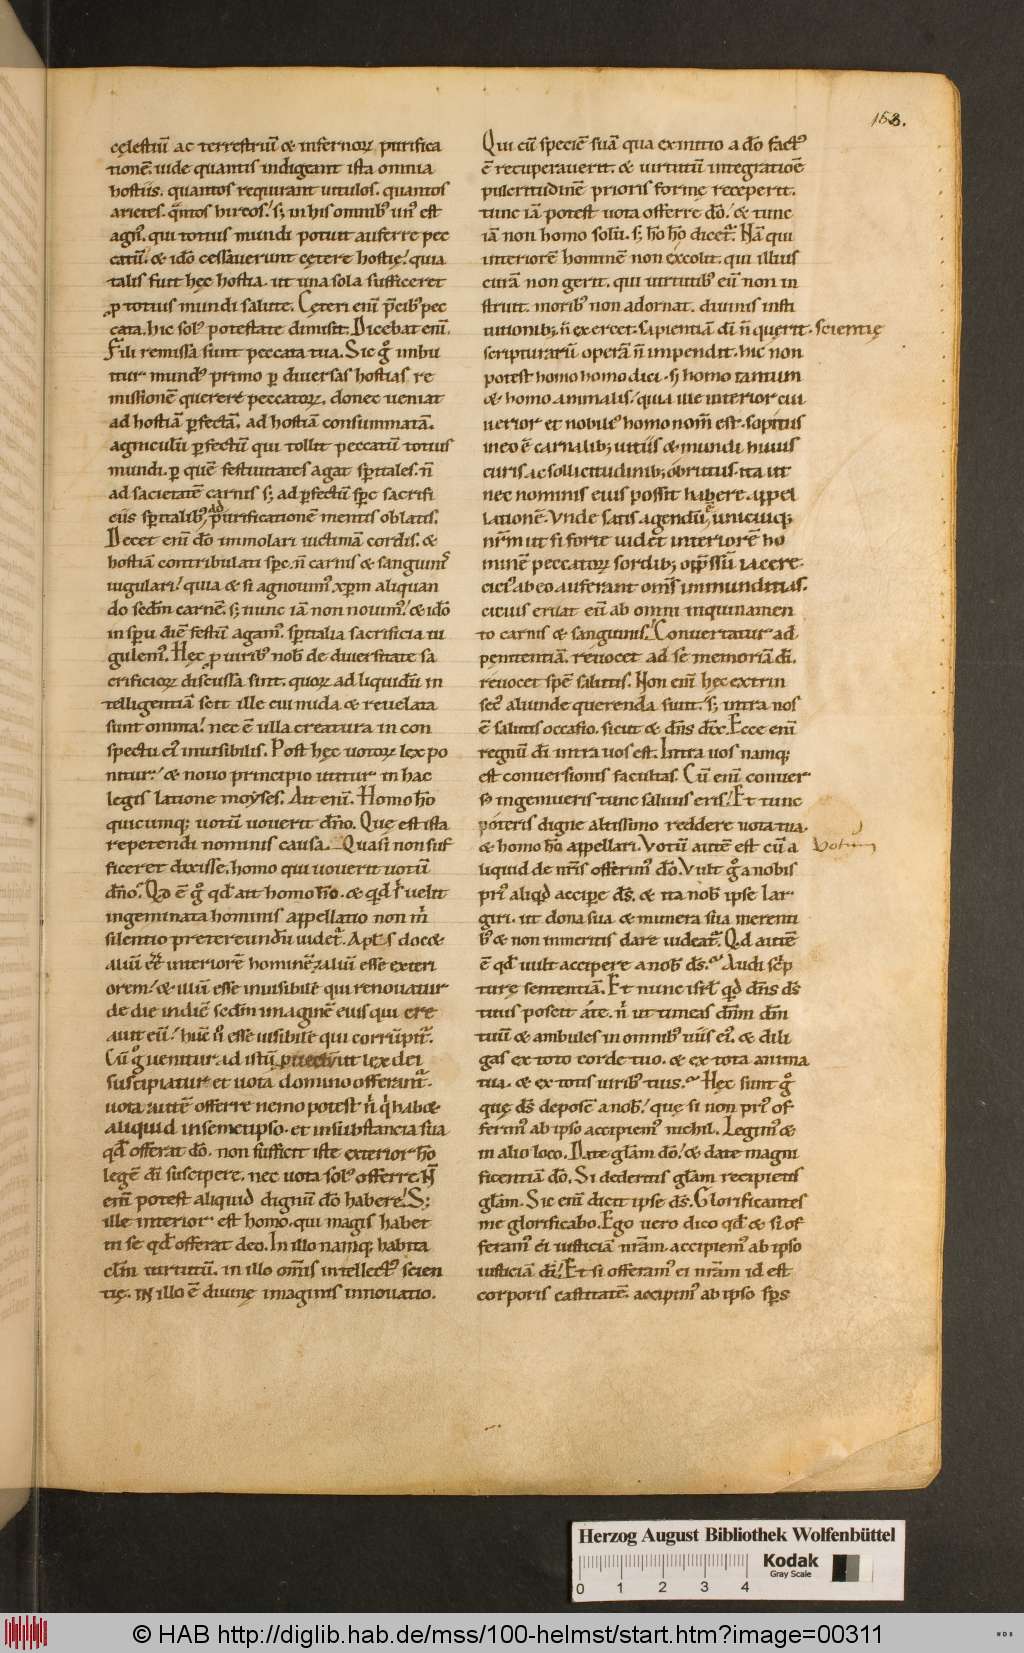 153.
cęlestiū ac terrestriū & infernoꝝ purifica
tionē. uide quantis indigeant ista omnia
hostiis. quantos requirant uitulos. quantos
arietes. qͣntos hircos. sꝫ in his omnibꝰ unꝰ est
agnꝰ. qui totius mundi potuit auferre pec
catū. & idō cessauerunt cętere hostię. quia
talis fuit hęc hostia. ut una sola sufficeret
ꝓ totius mundi salute. Cęteri enī p̄cibꝰ pec
cata. hic solꝰ potestate dimisit. Dicebat enī.
Fili remissa sunt peccata tua. Sic gͦ imbu
itur mundꝰ primo ꝑ diuersas hostias re
missionē querere peccatoꝝ. donec ueniat
ad hostiā ꝑfectā. ad hostiā consummatā.
agniculū ꝑfectū qui tollit peccatū totius
mundi. ꝑ quē festiuitates agat sp̄itales. n̄
ad sacietatē carnis sꝫ ad ꝑfectū sp̄c sacrifi
ciis sp̄italibꝰ ad purificationē mentis oblatis.
Decet enī dō immolari uictimā cordis. &
hostiā contribulati sp̄c. n̄ carnis & sanguinis
iugulari. quia & si agnouimꝰ xp̄m aliquan
do sedm carnē. sꝫ nunc iā non nouimꝰ. & idō
in sp̄u diē festū agamꝰ. sp̄italia sacrificia iu
gulemꝰ. Hęc ꝓ uiribꝰ nob̄ de diuersitate sa
crificioꝝ discussa sint. quoꝝ ad liquidū in
telligentiā scit ille cui nuda & reuelata
sunt omnia. nec ē ulla creatura in con
spectu eiꝰ inuisibilis. Post hęc uotoꝝ lex po
nitur. & nouo principio utitur in hac
legis latione moyses. Ait enī. Homo hō
quicumqꝫ uotū uouerit dn̄o. Que est ista
repetendi nominis causa. Quasi non suf
ficeret dixisse. homo qui uouerit uotū
dn̄o. Qd ē gͦ qd ait homo hō. & qd uelit
ingeminata hominis appellatio non m̄
silentio pretereundū uidetͬ. Apl̄s doc&
aliū eē interiorē hominē. & aliū esse exteri
orem. & illū esse inuisibilē qui renouatur
de die in diē sedm imaginē eius qui cre
auit eū. hunc ū esse uisibilē qui corrūpitͬ.
Cū gͦ uenitur ad istū ꝓuectū ut lex dei
suscipiatur et uota domino offerantͬ.
uota autē offerre nemo potest n̄ q̄ hab&
aliquid in semetipso. et in substantia sua
qd offerat dō. non sufficit iste exterior hō
legē di suscipere. nec uota solꝰ offerre. N̄
enim potest aliquid dignū dō habere. Sꝫ
ille interior est homo. qui magis habet
in se qd offerat deo. In illo namqꝫ habita
clm uirtutū. in illo om̄is intellectꝰ scien
tię. IN illo ē diuinę imaginis innouatio.
Qui cū speciē suā qua ex initio a dō factꝰ
ē recuperauerit. & uirtutū integratione
pulcritudinē prioris formę receperit.
tunc iā potest uota offerre dō. & tunc
iā non homo solū. sꝫ hō hō dicetͬ. Nā qui
interiorē hominē non excolit. qui illius
curā non gerit. qui uirtutibꝰ eū non in
struit. moribꝰ non adornat. diuinis insti
tutionibꝫ n̄ exercet. sapientiā di n̄ querit. scientię
scripturarū operā n̄ impendit. hic non
potest homo homo dici. sꝫ homo tantum
& homo animalis. quia ille interior cui
uerior et nobilis homo nom̄ est. sopitus
in eo ē carnalibꝫ uitiis & mundi huius
curis ac sollicitudinibꝫ obrutus. ita ut
nec nominis eius possit habere appel
lationē. Unde satis agendū ē unicuiqꝫ
nr̄m ut si forte uidet interiorē ho
minē peccatoꝝ sordibꝫ oppssū iacere.
ab eo auferant om̄s immunditias.
cicius eruat eū ab omni inquinamen
to carnis & sanguinis. Conuertatur ad
penitentiā. reuocet ad se memoriā di.
reuocet spē salutis. Non enī hęc extrin
secꝰ aliunde querenda sunt. sꝫ intra nos
ē salutis occasio. sicut & dn̄s dixc. Ecce enī
regnū di intra uos est. Intra uos namqꝫ
est conuersionis facultas. Cū enī conuer
sꝰ ingemueris tunc saluus eris. Et tunc
poteris digne altissimo reddere uota tua.
& homo hō appellari. Votū autē est cū a
Votum
liquid de nr̄is offerimꝰ dō. Vult gͦ a nobis
priꝰ aliqd accipe ds. & ita nob̄ ipse lar
giri. ut dona sua & munera sua merenti
bꝰ & non inmeritis dare uideatͬ. Qd autē
ē qd uult accipere a nob̄ ds. Audi scp
turę sententiā. Et nunc isrl̄ qd dn̄s ds
tuus poscit a te. n̄ ut timeas dn̄m dm̄
tuū & ambules in omnibꝰ uiis eiꝰ. & dili
gas ex toto corde tuo. & ex tota anima
tua. & ex totis uiribꝰ tuis. Hęc sunt gͦ
quę ds deposcit a nob̄. quę si non priꝰ of
ferimꝰ ab ipso accipiemꝰ nichil. Legimꝰ &
in alio loco. Date glam dō. & date magni
ficentiā dō. Si dederitis glam recipietis
glam. Sic enī dicit ipse ds. Glorificantes
me glorificabo. Ego uero dico qd & si of
feramꝰ ei iusticiā nr̄am. accipiemꝰ ab ipso
iusticiā di. Et si offeramꝰ ei nr̄am id est
corporis castitatē. accipimꝰ ab ipso sp̄s
Herzog August Bibliothek Wolfenbüttel
Kodak
Gray Scale
0 1 2 3 4
© HAB http://diglib.hab.de/mss/100-helmst/start.htm?image=00311